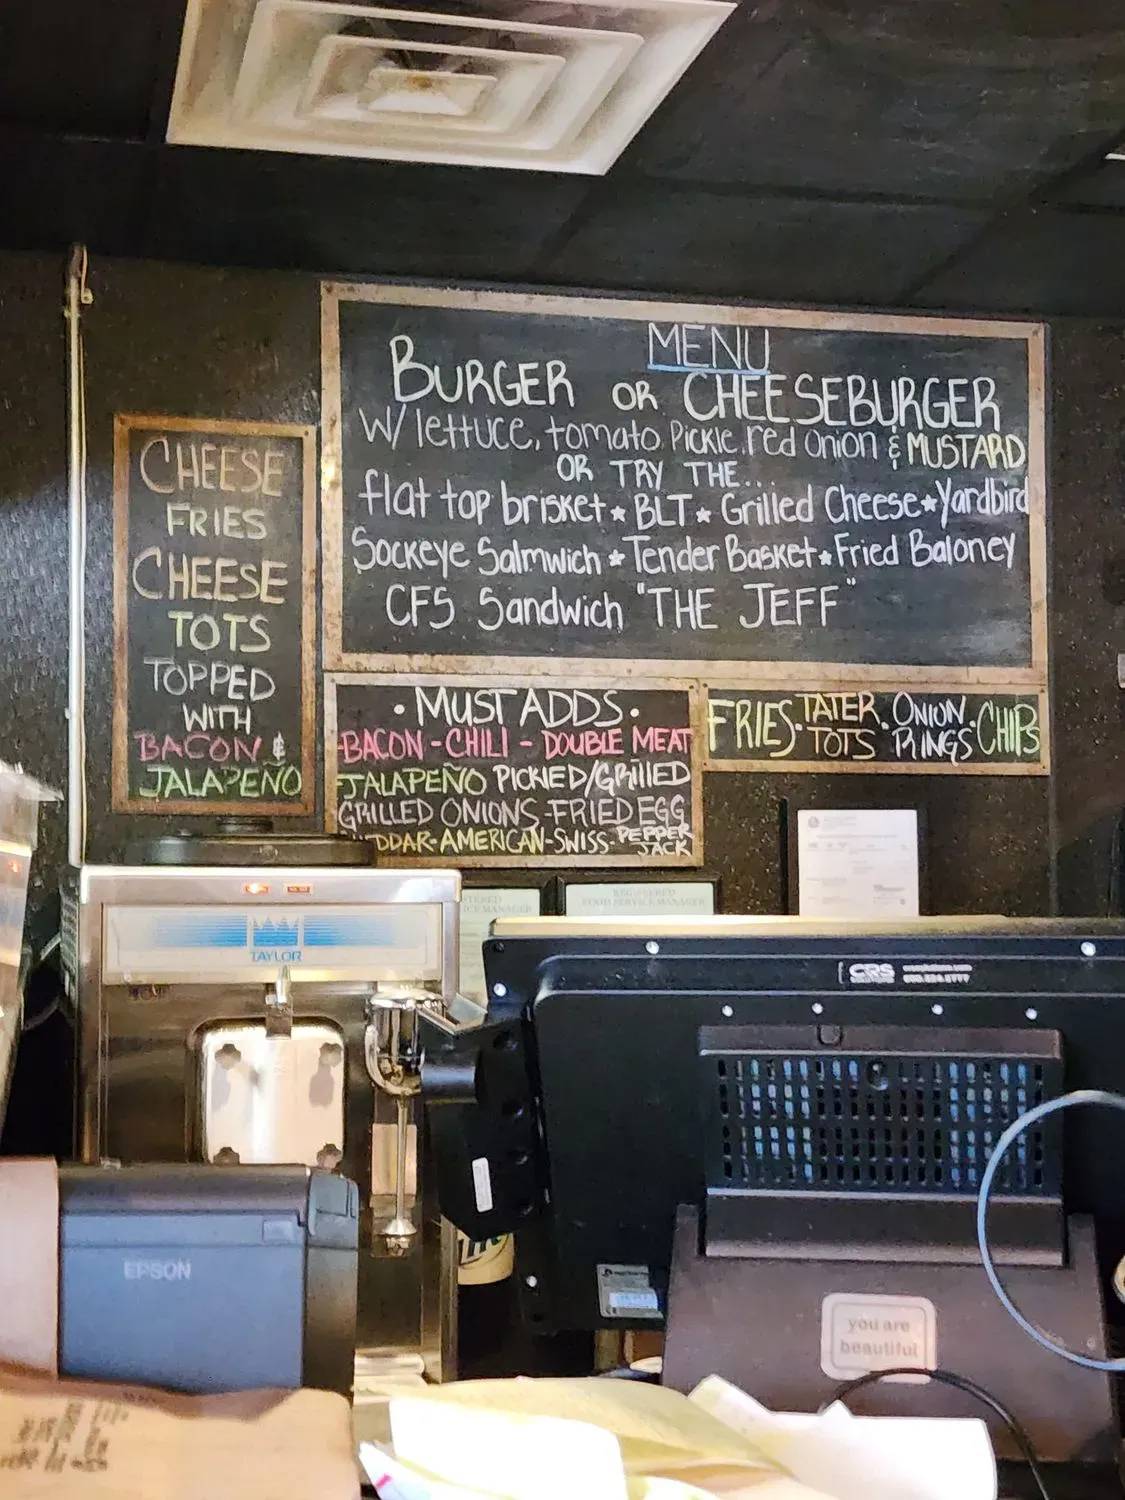 MENU
BURGER OR CHEESEBURGER
W/ lettuce, tomato, Pickle, red onion & MUSTARD
OR TRY THE...
flat top brisket ★ BLT ★ Grilled Cheese ★ Yardbird
Sockeye Salmwich ★ Tender Basket ★ Fried Baloney
CFS Sandwich "THE JEFF"
CHEESE
FRIES
CHEESE
TOTS
TOPPED
WITH
BACON &
JALAPEÑO
• MUST ADDS •
BACON - CHILI - DOUBLE MEAT
JALAPEÑO PICKLED/GRILLED
GRILLED ONIONS - FRIED EGG
DDAR - AMERICAN - SWISS - PEPPER JACK
FRIES • TATER TOTS • ONION RINGS • CHIPS
REGISTERED
FOOD SERVICE MANAGER
TAYLOR
CRS
EPSON
you are
beautiful